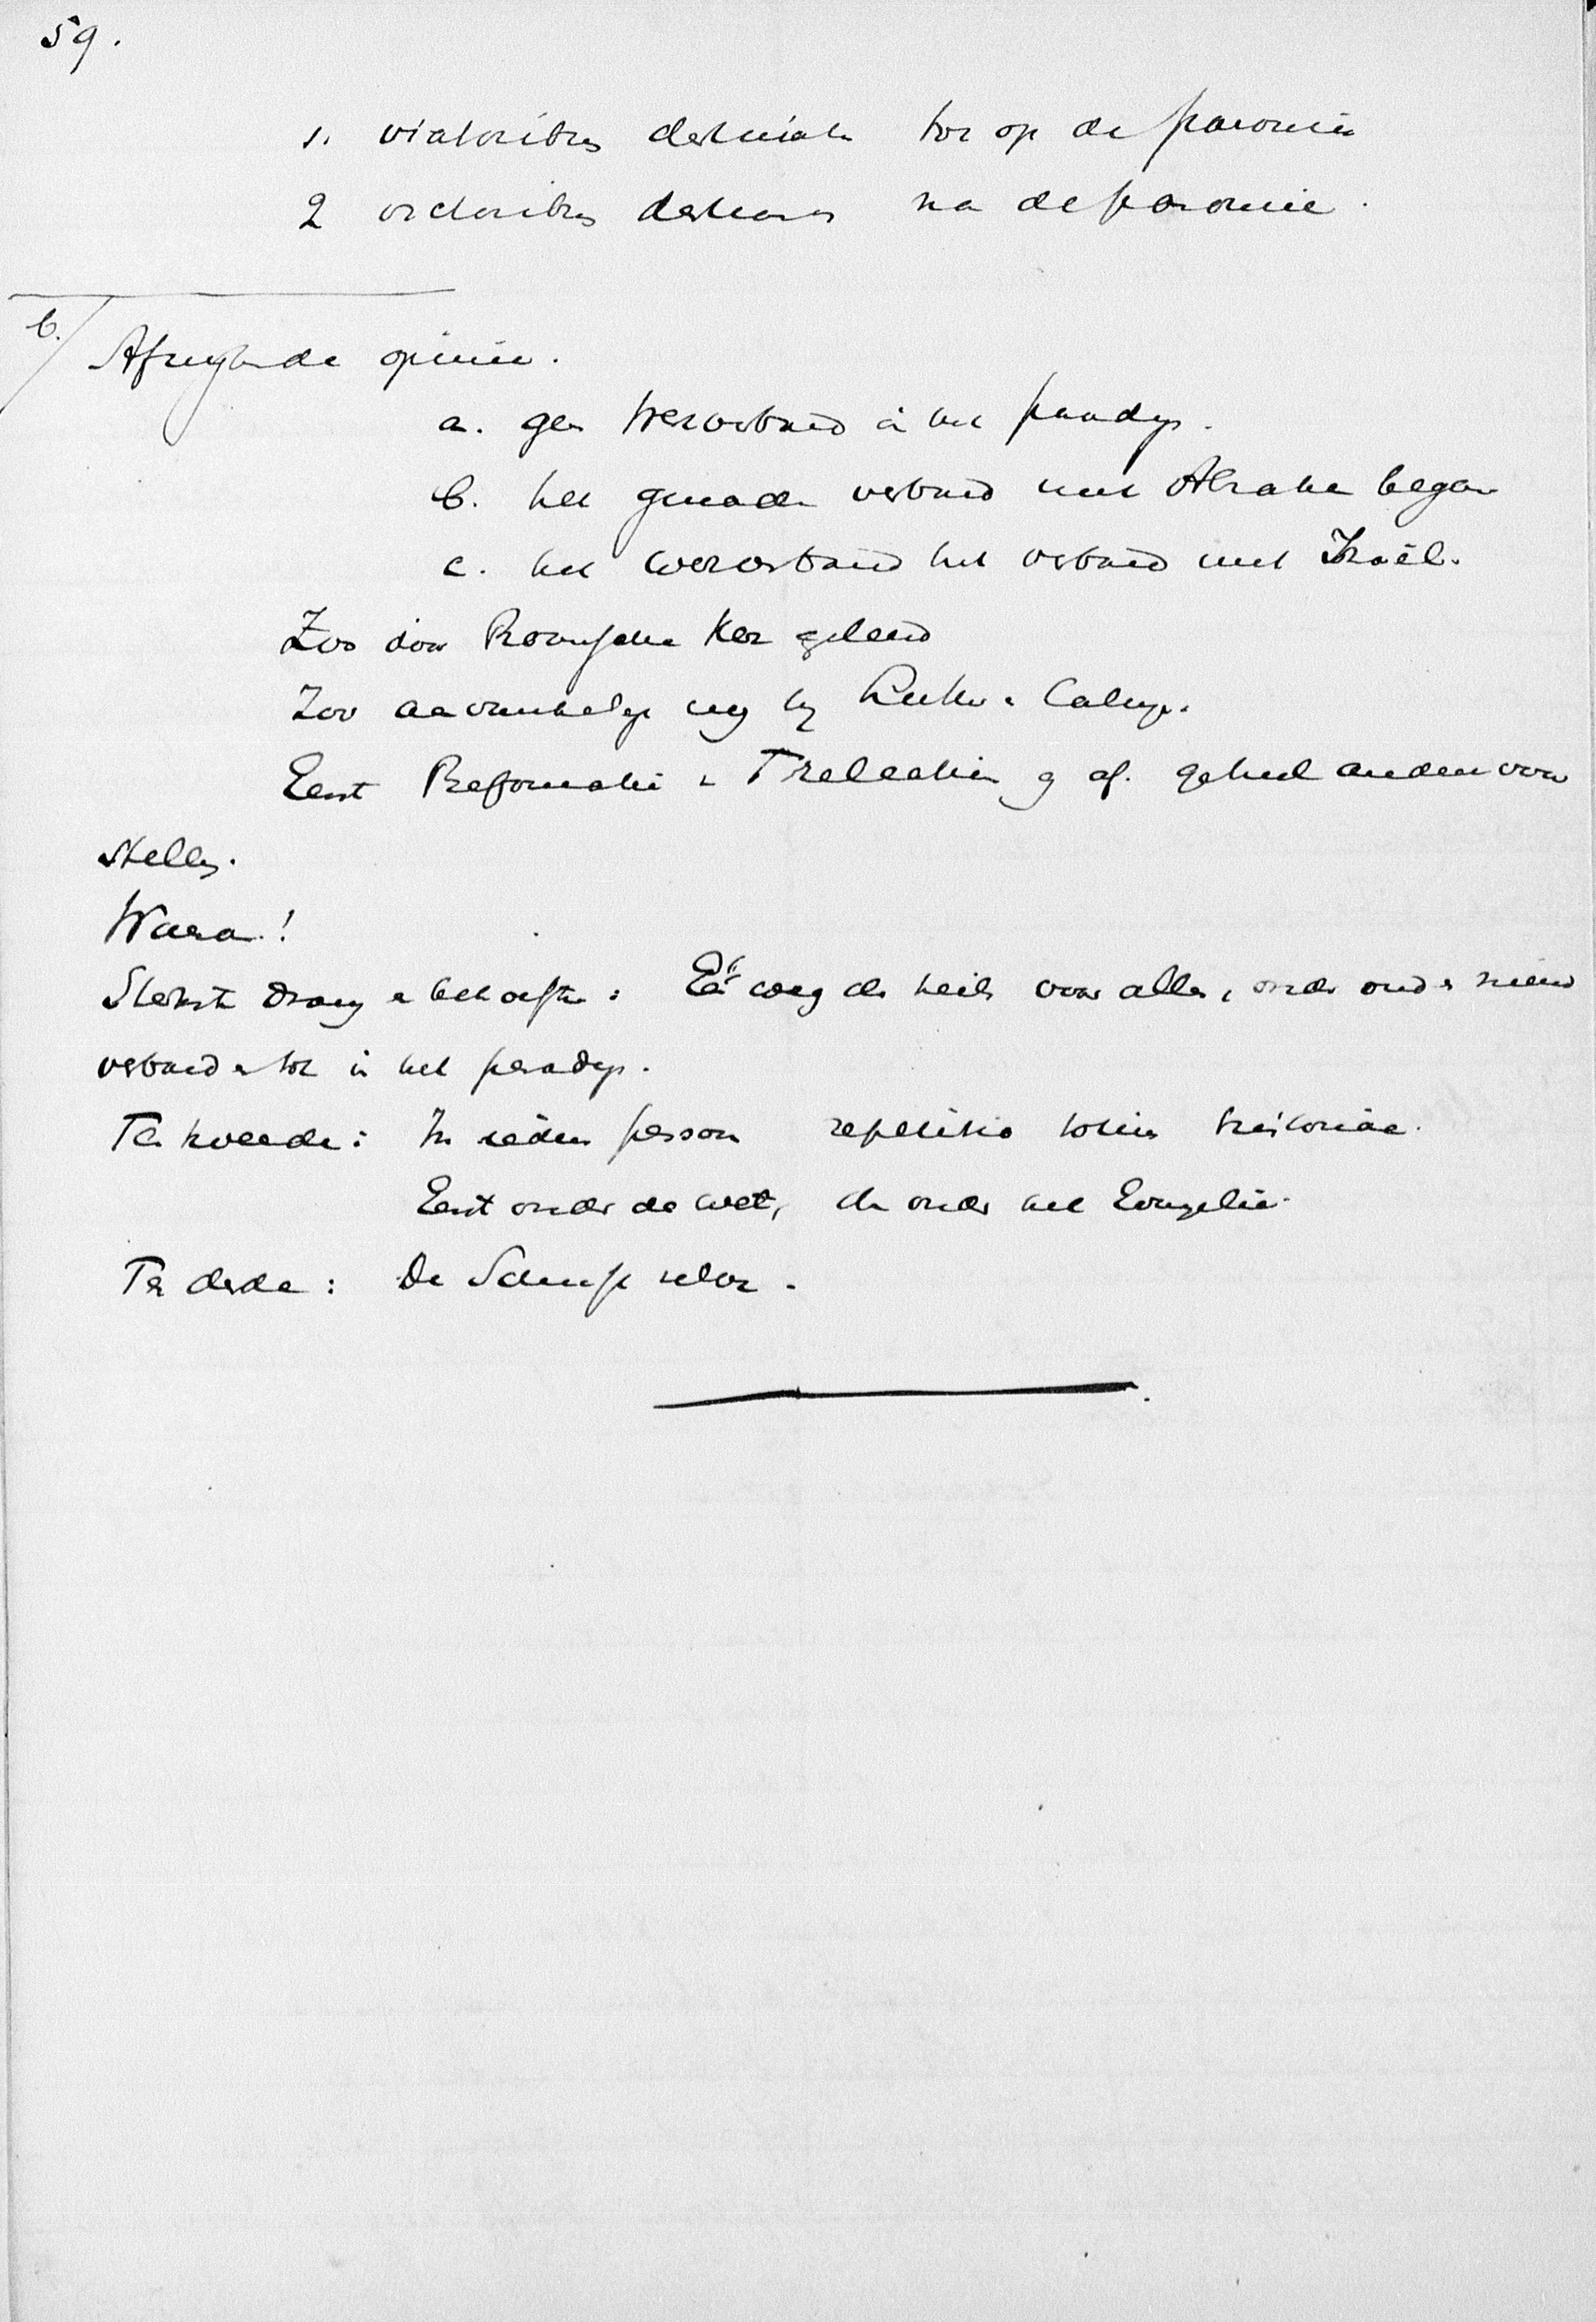 59.
1. viatoribus destinata tot op de parousie
2 victoribus destinata na de parousie.
b. Afwijkende opinie.
a. geen Werkverbond in het paradijs.
b. het genaden verbond met Abraham began
c. het werkverbond het verbond met Israël.
Zoo door Roomsche Kerk geleerd
Zoo aanvankelijk nog bij Luther en Calvijn.
Eerst Reformatie en geheel anderen voor
stellen.
Waarom!
Sterkste drang en behoefte: Eén weg des heils voor allen, onder oud en nieuw
verbond en tot in het paradijs.
Ten tweede: In iederen persoon repetitio totius historiae.
Eerst onder de wet, dan onder het Evangelie.
Ten derde: De Schrift zelve.